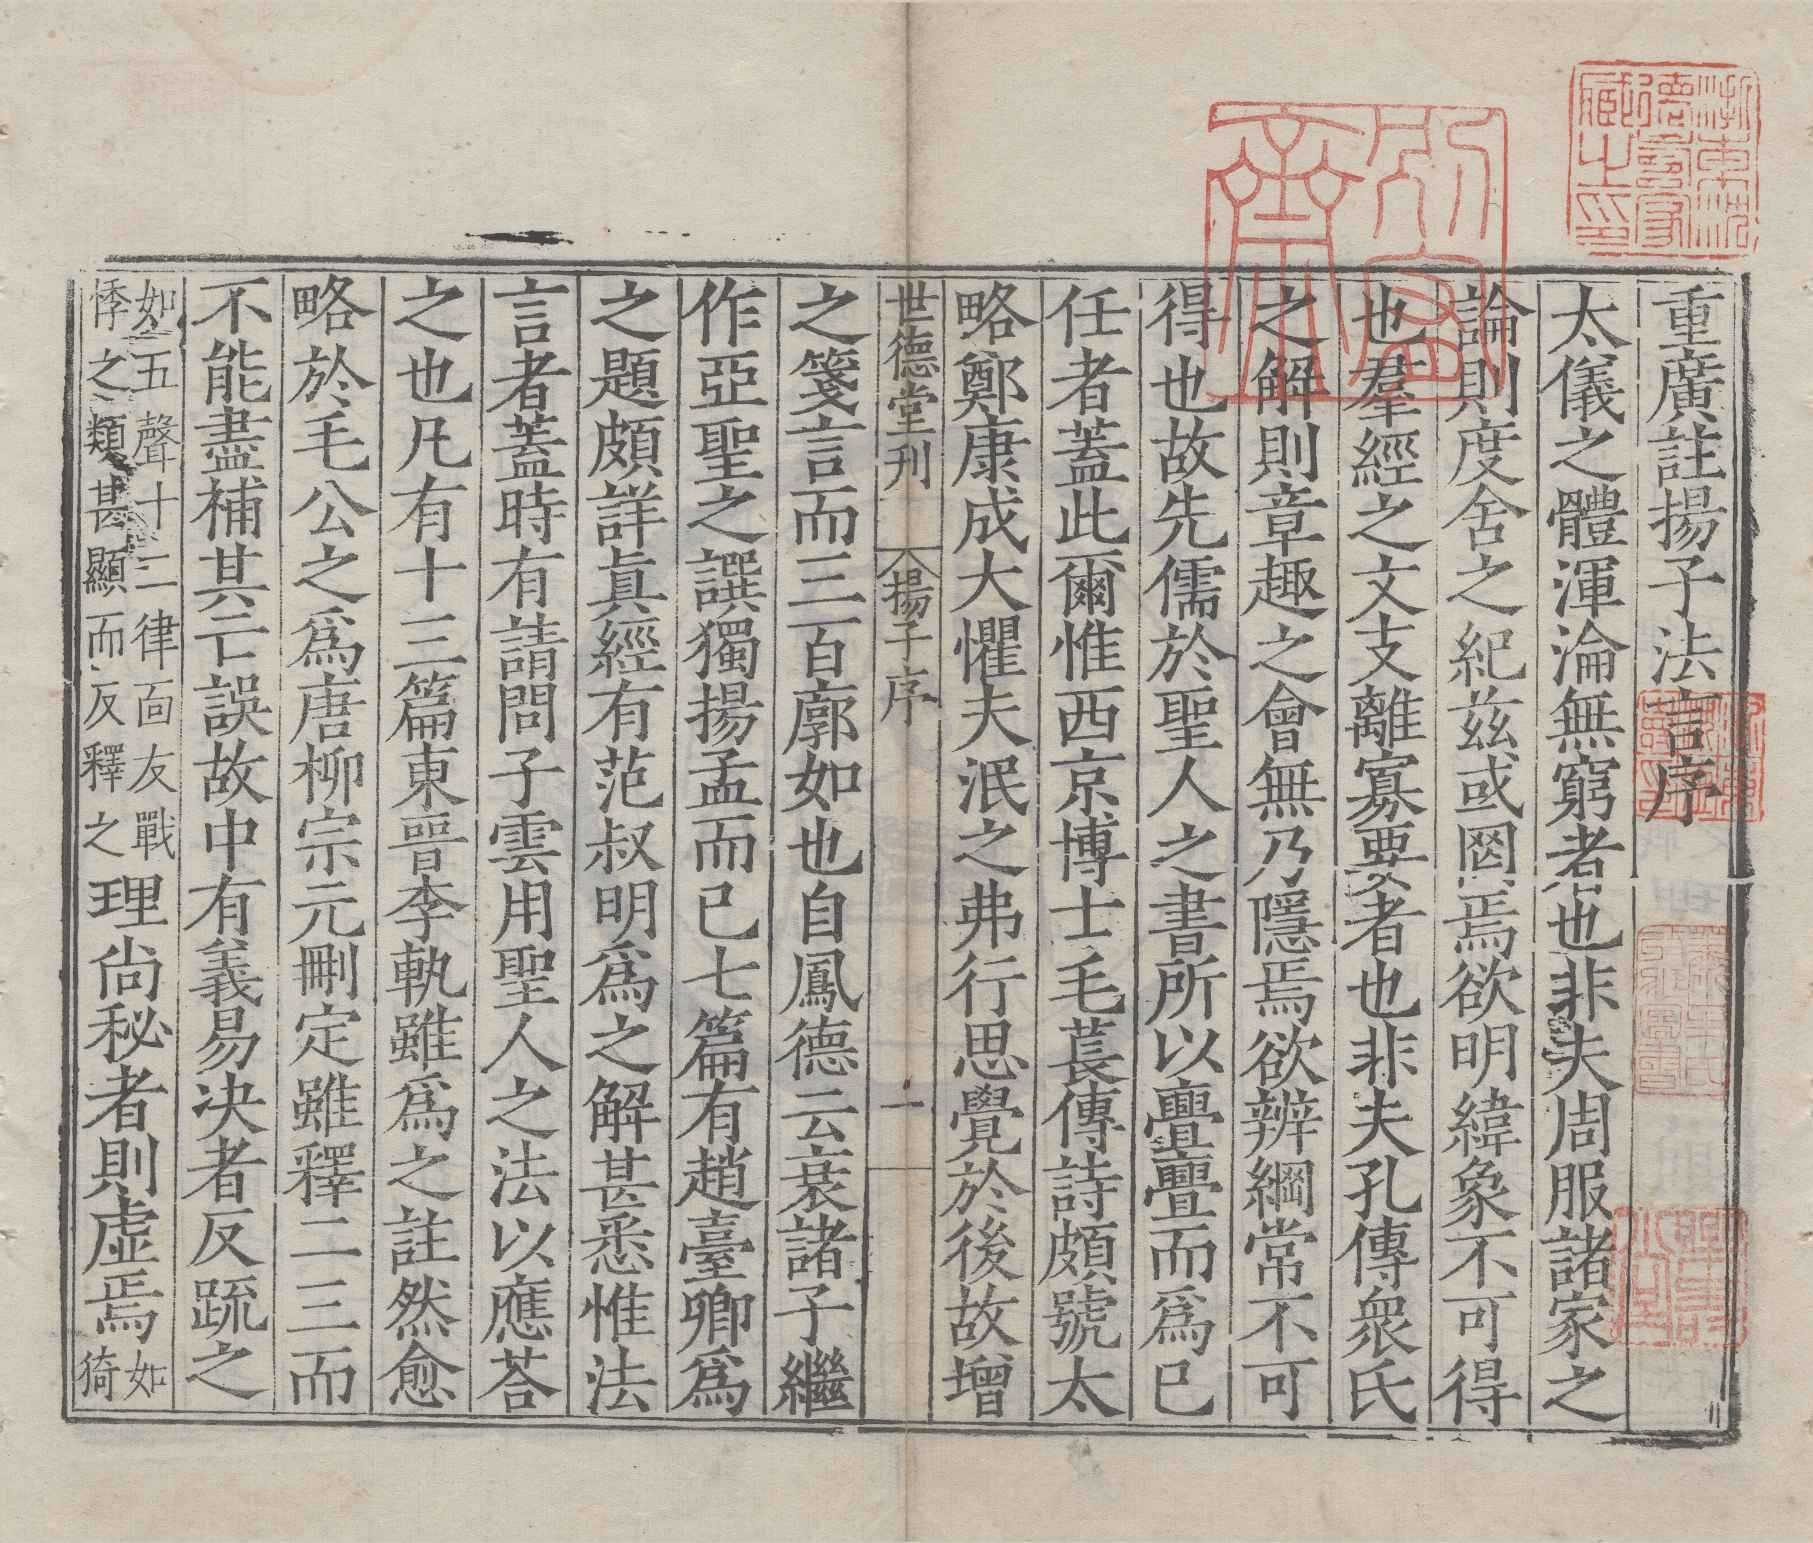 重廣註揚子法言序
太儀之體渾淪無窮者也非夫周服諸家之
論則度舍之紀茲或罔焉欲明緯象不可得
也羣經之文支離寡要者也非夫孔傳衆氏
之解則章趣之會無乃隱焉欲辨綱常不可
得也故先儒於聖人之書所以亹亹而爲已
任者蓋此爾惟西京博士毛萇傳詩頗號太
略鄭康成大懼夫泯之弗行思覺於後故增
世德堂刊
揚子序
一
之箋言而三百廓如也自鳳德云衰諸子繼
作亞聖之譔獨揚孟而已七篇有趙臺卿爲
之題頗詳眞經有范叔明爲之解甚悉惟法
言者蓋時有請問子雲用聖人之法以應荅
之也凡有十三篇東晉李軌雖爲之註然愈
略於毛公之爲唐柳宗元刪定雖釋二三而
不能盡補其亡誤故中有義易决者反疏之
如五聲十二律面友戰
悸之類甚顯而反釋之
理尚秘者則虛焉
如
猗
浙東沈德壽家藏之印